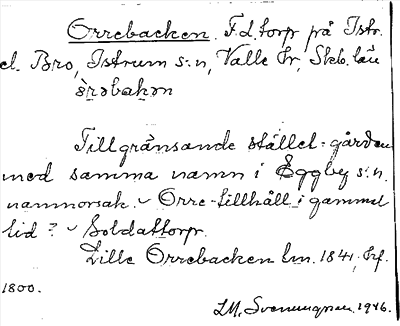 Orrebacken. F.d. torp på Istr.
el. Bro, Istrum s:n, Valle hr, Skb. län
òrəbakən
Tillgränsande stället = gården
med samma namn i Eggby s:n.
namnorsak. - Orre-tillhåll i gammel
tid? - Soldattorp.
Lilla Orrebacken lm. 1841, hf.
1800.
I.M. Svenungsson. 1946.